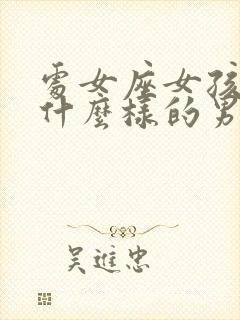 處女座女孩
什麼樣的男
吳進忠